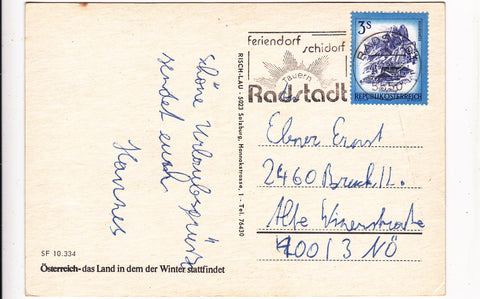 Feriendorf
schidorf
Tauern
Radstadt
3 S
RADSTADT
5550
REPUBLIK ÖSTERREICH
schöne Urlaubsgrüße
sendet euch
Hannes
RISCH-LAU - 5023 Salzburg, Hannakstrasse, 1 - Tel. 76430
Ebner Ernst
2460 Bruck/L.
Alte Wienerstraße
100/3 NÖ
SF 10.334
Österreich - das Land in dem der Winter stattfindet